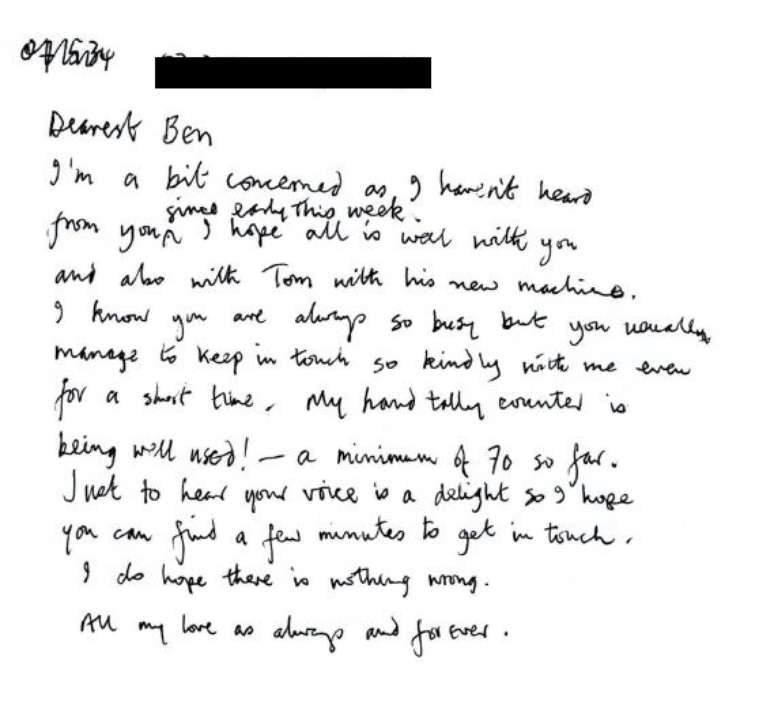 Dearest Ben
I'm a bit concerned as I haven't heard
since early this week.
from you ^ I hope all is well with you
and also with Tom with his new machine.
I know you are always so busy but you usually
manage to keep in touch so kindly with me even
for a short time. My hand tally counter is
being well used! — a minimum of 70 so far.
Just to hear your voice is a delight so I hope
you can find a few minutes to get in touch.
I do hope there is nothing wrong.
All my love as always and forever.